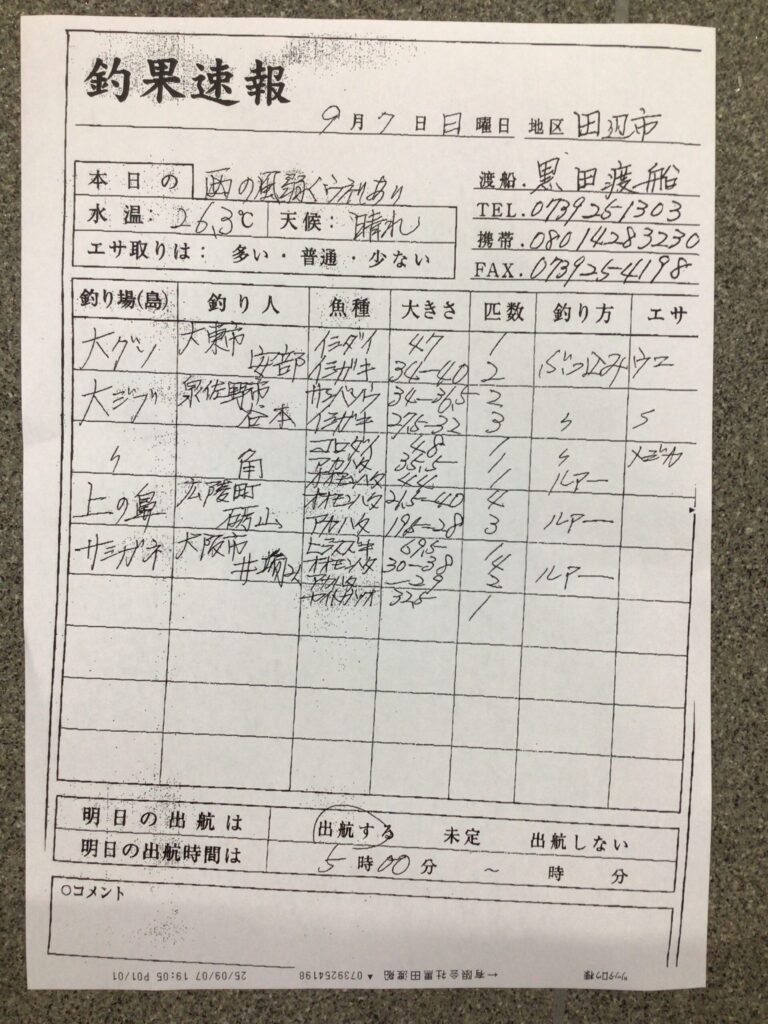 釣果速報
9月7日日曜日 地区 田辺市
本日の 西の風強くウネリあり
水温: 26.3℃ 天候: 晴れ
エサ取りは: 多い・普通・少ない
渡船. 黒田渡船
TEL. 0739251303
携帯. 08014283230
FAX. 0739254198
釣り場(島) 釣り人 魚種 大きさ 匹数 釣り方 エサ
大グソ 大東市 イシダイ 47 1
安部 イシガキ 34-40 2 ぶっ込み ウニ
大ジブ 泉佐野市 サンバソウ 34-36,5 2
谷本 イシガキ 27,5-32 3 〃 〃
コロダイ 48 1
〃 角 アカハタ 35,5- 1 〃
オオモンハタ 44 1 ルアー
上の鼻 広陵町 オオモンハタ 21,5-40 4
砺山 アカハタ 19,5-28 3 ルアー
サシガネ 大阪市 ヒラスズキ 69,5 1
オオモンハタ 30-38 4
アカハタ -29 2 ルアー
32,5 1
明日の出航は 出航する 未定 出航しない
明日の出航時間は 5時00分 ~ 時 分
○コメント
ツッタロウ様 ←有限会社黒田渡船 ▲ 0739254198 25/09/07 19:05 P01/01